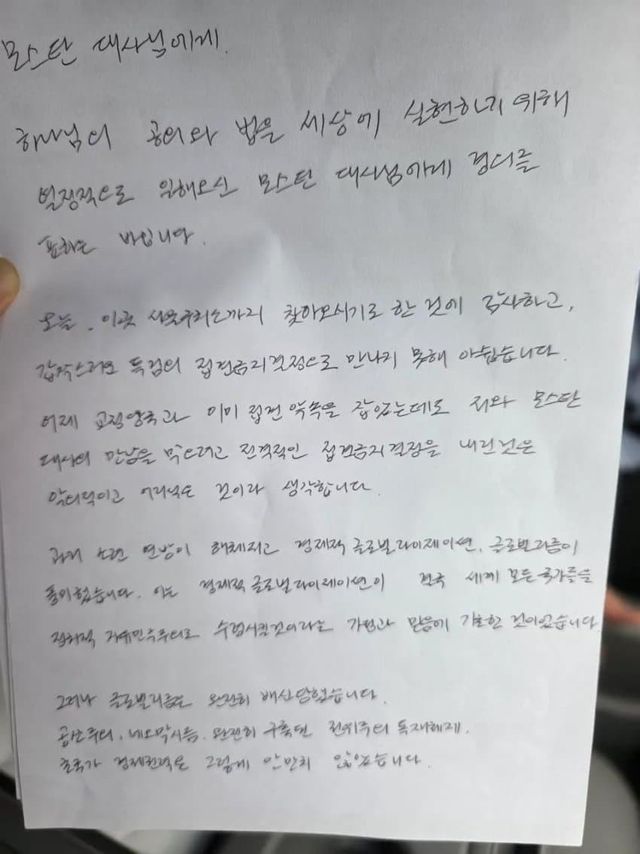 모스탄 대사님에게.
하나님의 공의와 법을 세상에 실현하기 위해
열정적으로 일해오신 모스탄 대사님에게 경의를
표하는 바입니다.
오늘, 이곳 서울구치소까지 찾아오시기로 한 것에 감사하고,
갑작스러운 특검의 접견금지결정으로 만나지 못해 아쉽습니다.
어제 교정당국과 이미 접견 약속을 잡았는데도 저와 모스탄
대사의 만남을 막으려고 전격적인 접견금지결정을 내린 것은
악의적이고 어리석은 것이라 생각합니다.
과거 소련 연방이 해체되고 경제적 글로벌라이제이션, 글로벌리즘이
풍미했습니다. 이는 경제적 글로벌라이제이션이 전 세계 모든 국가들을
정치적 자유민주주의로 수렴시킬 것이라는 가정과 믿음에 기초한 것이었습니다
그러나 글로벌리즘은 완전히 배신당했습니다.
공산주의, 네오막시즘, 완전히 구축된 전위주의 독재체제,
초국가 경제권력은 그렇게 만만치 않았습니다.